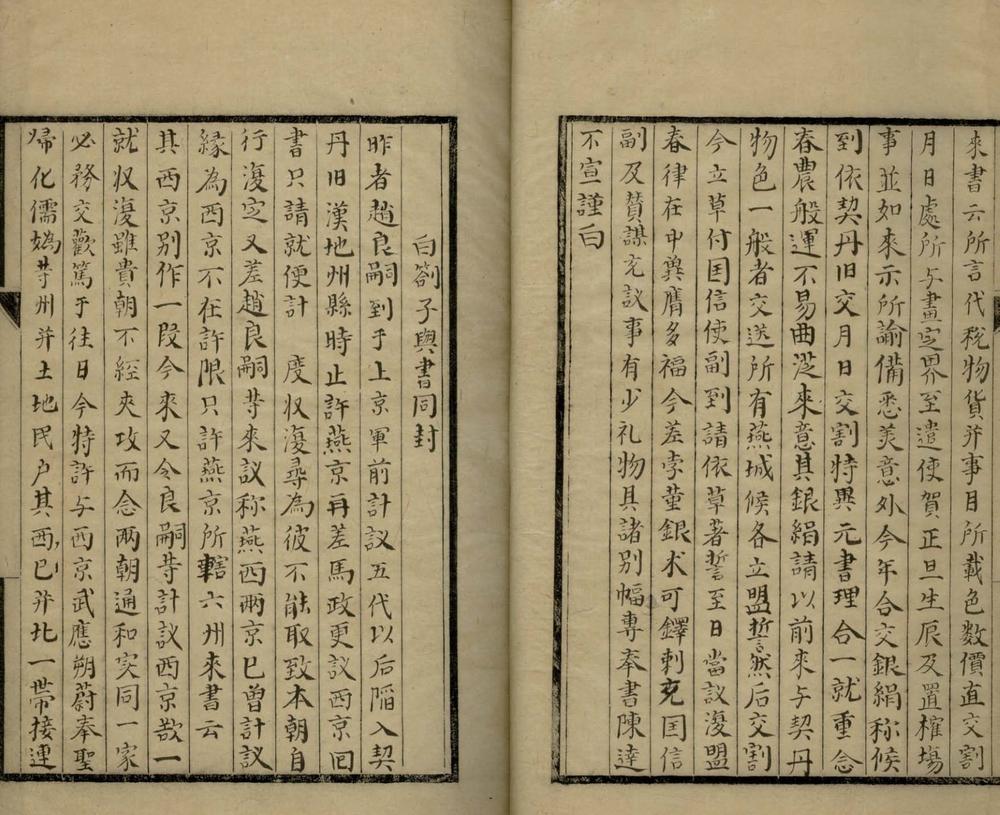 來書云所言代税物貨并事目所載色数價直交割
月日處所与畫定界至遣使賀正旦生辰及置榷塲
事並如來示所諭備悉美意外今年合交銀絹称候
到依契丹旧交月日交割特異元書理合一就重念
春農般運不易曲從來意其銀絹請以前来与契丹
物色一般者交送所有燕城候各立盟誓然后交割
今立草付国信使副到請依草著誓至日當議復盟
春律在中兾膺多福今差孛堇銀术可鐸剌充国信
副及賛謀充議事有少礼物具諸別幅専奉書陳達
不宣謹白
白劄子與書同封
昨者趙良嗣到于上京軍前計議五代以后陥入契
丹旧漢地州縣時止許燕京再差馬政更議西京囘
書只請就便計 度収復尋為彼不能取致本朝自
行復定又差趙良嗣等来議称燕西兩京已曽計議
縁為西京不在許限只許燕京所轄六州来書云
其西京别作一段今来又令良嗣等計議西京欵一
就収復雖貴朝不經夾攻而念兩朝通和实同一家
必務交歡篤于往日今特許与西京武應朔蔚奉聖
帰化儒媯等州并土地民户其西已并北一帯接連